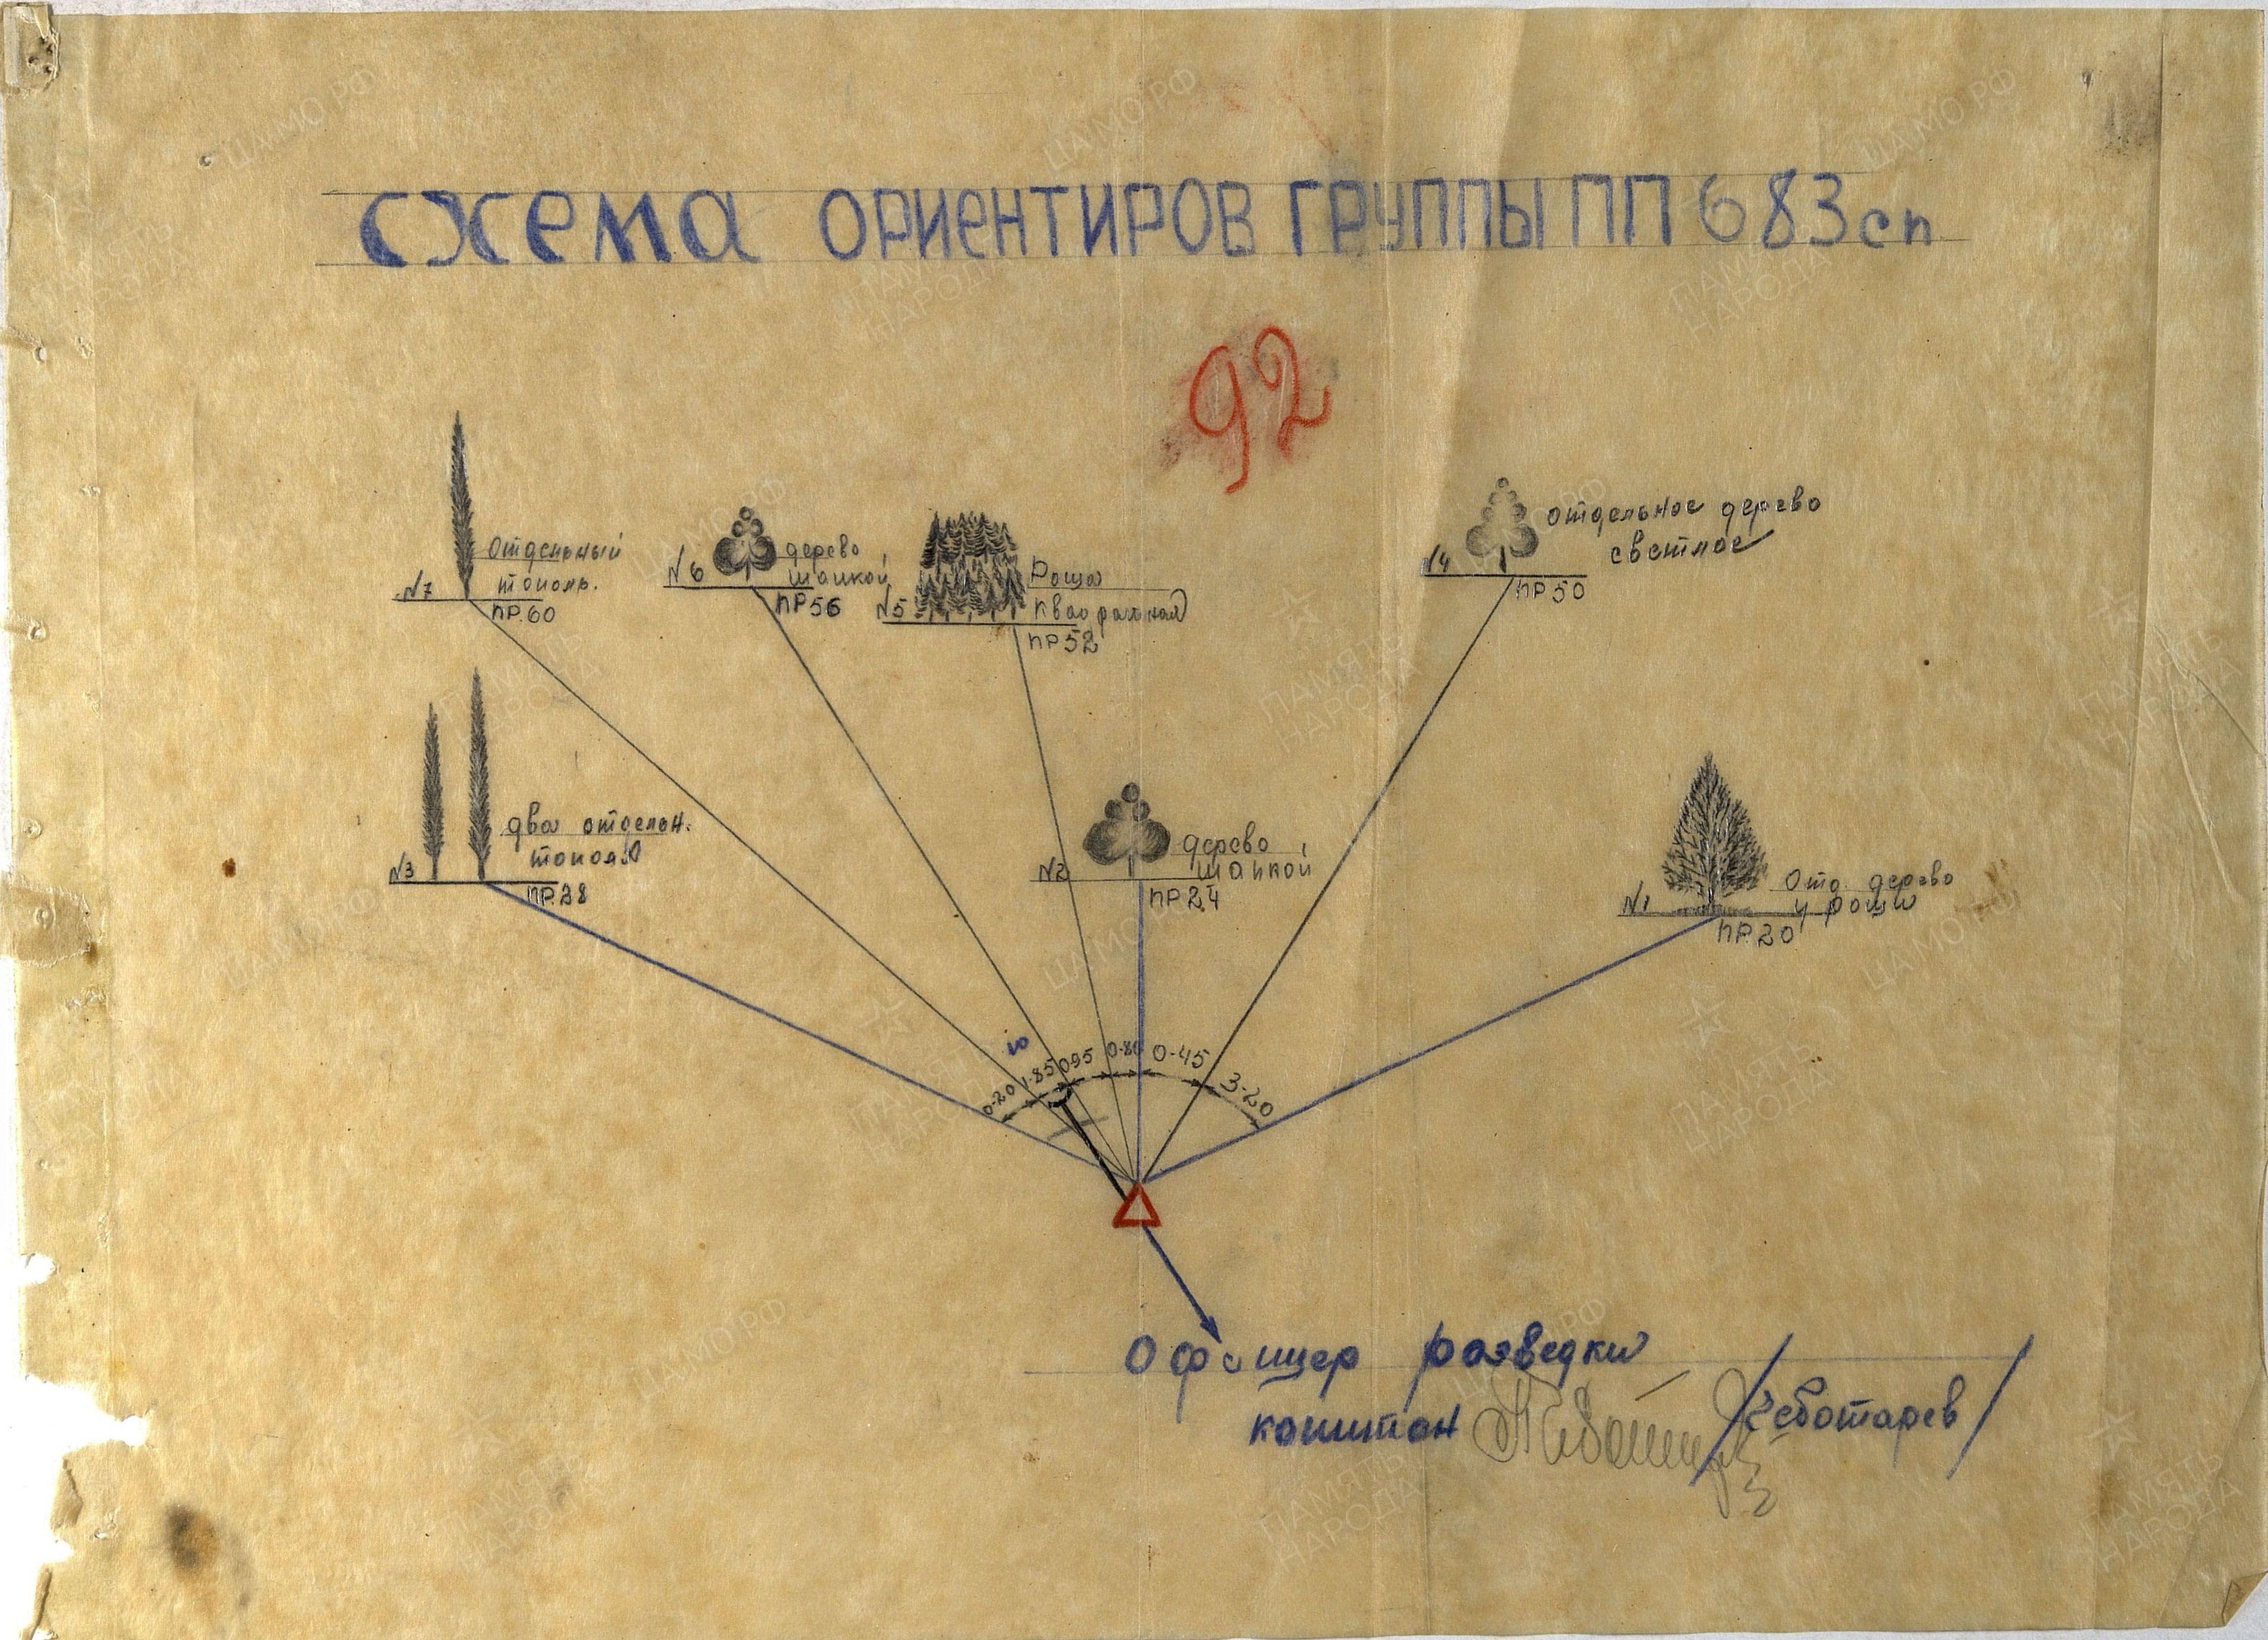 схема ориентиров группы ПП 683 сп
92
№7 отдельный
тополь.
ПР.60
№6 дерево
шапкой
ПР56
№5 Роща
квадратная
ПР52
№4 отдельное дерево
светлое
ПР50
№3 два отдельн.
тополя
ПР.28
№2 дерево
шапкой
ПР24
№1 Отд. дерево
у рощи
ПР.20
0-20 1-85 0-95 0-80 0-45 3-20
ю
Офицер разведки
капитан /Чеботарев/
ЦАМО РФ
ПАМЯТЬ
НАРОДА